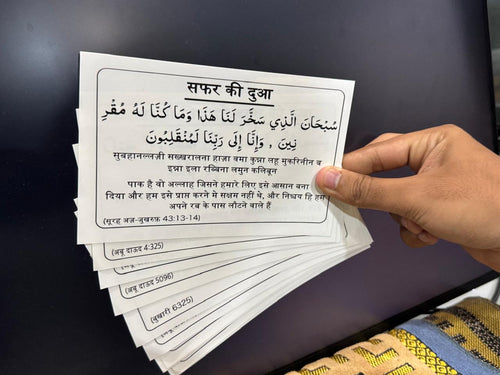 सफर की दुआ
سُبْحَانَ الَّذِي سَخَّرَ لَنَا هَذَا وَمَا كُنَّا لَهُ مُقْرِ
نِينَ , وَإِنَّا إِلَى رَبِّنَا لَمُنْقَلِبُونَ
सुबहानल्लज़ी सख्खरालना हाज़ा वमा कुन्ना लहु मुकरिनीन व
इन्ना इला रब्बिना लमुन कलिबून
पाक है वो अल्लाह जिसने हमारे लिए इसे आसान बना
दिया और हम इसे प्राप्त करने मे सक्षम नहीं थे, और निश्चय हि हम
अपने रब के पास लौटने वाले हैं
(सूरह अज़-ज़ुखरुफ़ 43:13-14)
(अबू दाऊद 4:325)
(अबू दाऊद 5096)
(बुखारी 6325)